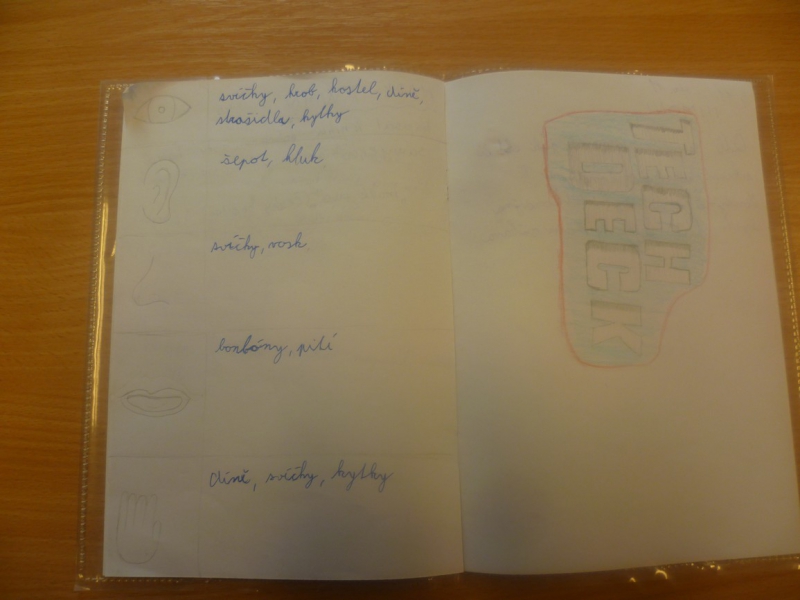 svíčky, hrob, kostel, díně,
strašidla, kytky
šepot, hluk
svíčky, vosk
bonbóny, pití
díně, svíčky, kytky
TECH
DECK